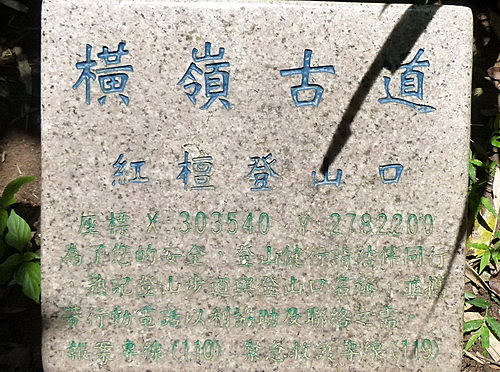 橫嶺古道
紅檀登山口
座標 X:303540 Y:2782200
為了您的安全，登山健行請結伴同行
，熟記登山步道與登山口名稱，並攜
帶行動電話以利協助及聯絡之需。
報案專線(110) 緊急救災專線(119)